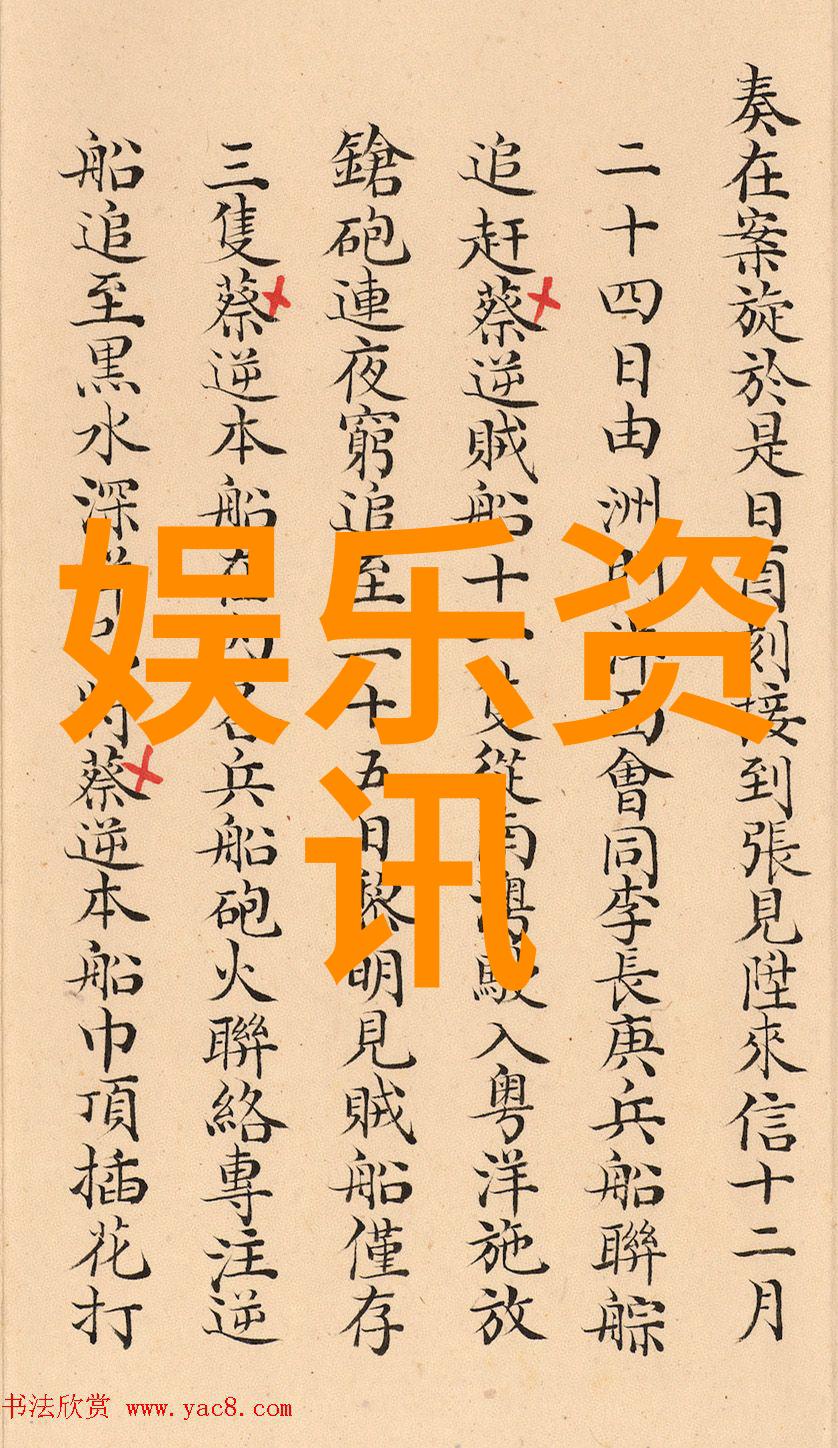 奏在案旋於是日酉刻接到張見陞來信十二月
二十四日由洲洋面會同李長庚兵船聯䑸
追赶蔡逆賊船十一從南澳駛入粵洋施放
鎗砲連夜窮追至二十五日黎明見賊船僅存
三隻蔡逆本船在內各兵船砲火聯絡專注逆
船追至黑水深將蔡逆本船巾頂插花打
娱乐资
讯
书法欣赏 www.yac8.com